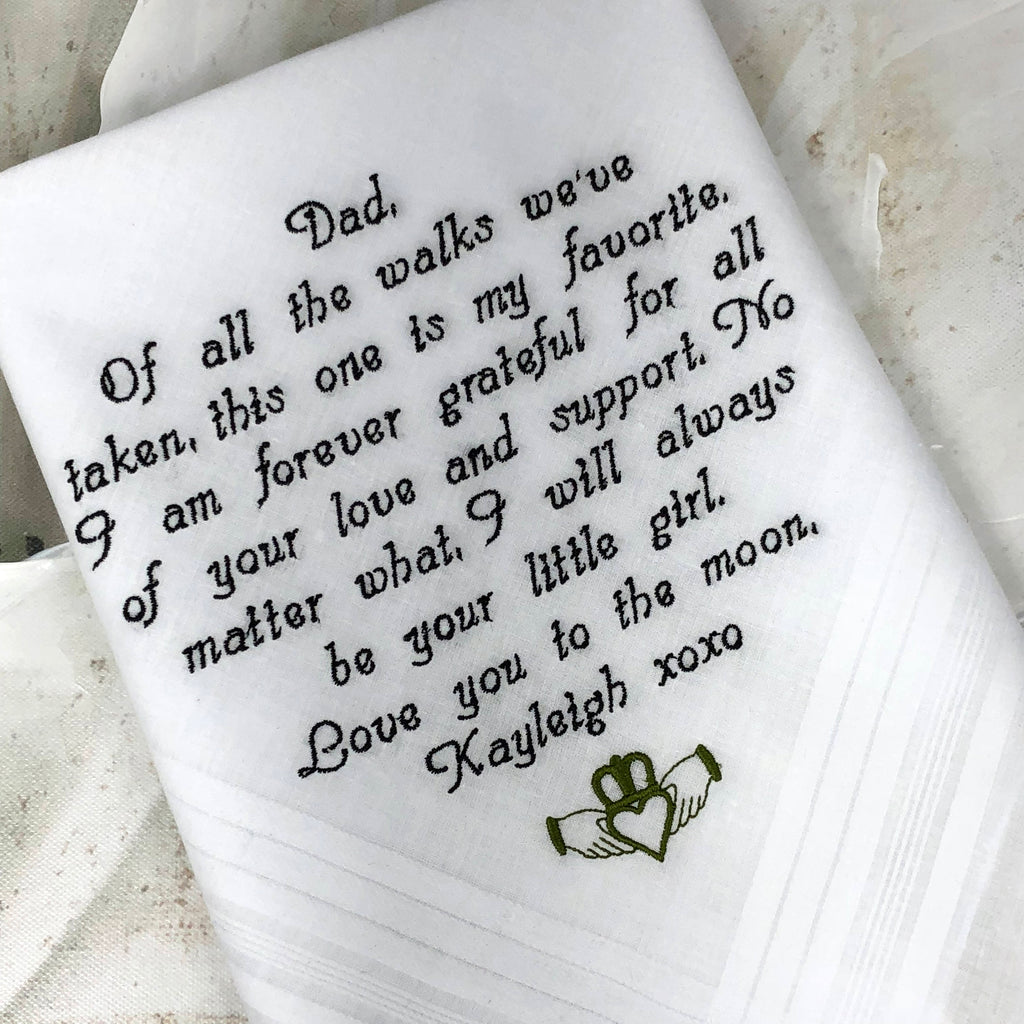 Dad,
Of all the walks we've
taken, this one is my favorite.
I am forever grateful for all
of your love and support. No
matter what, I will always
be your little girl.
Love you to the moon,
Kayleigh xoxo